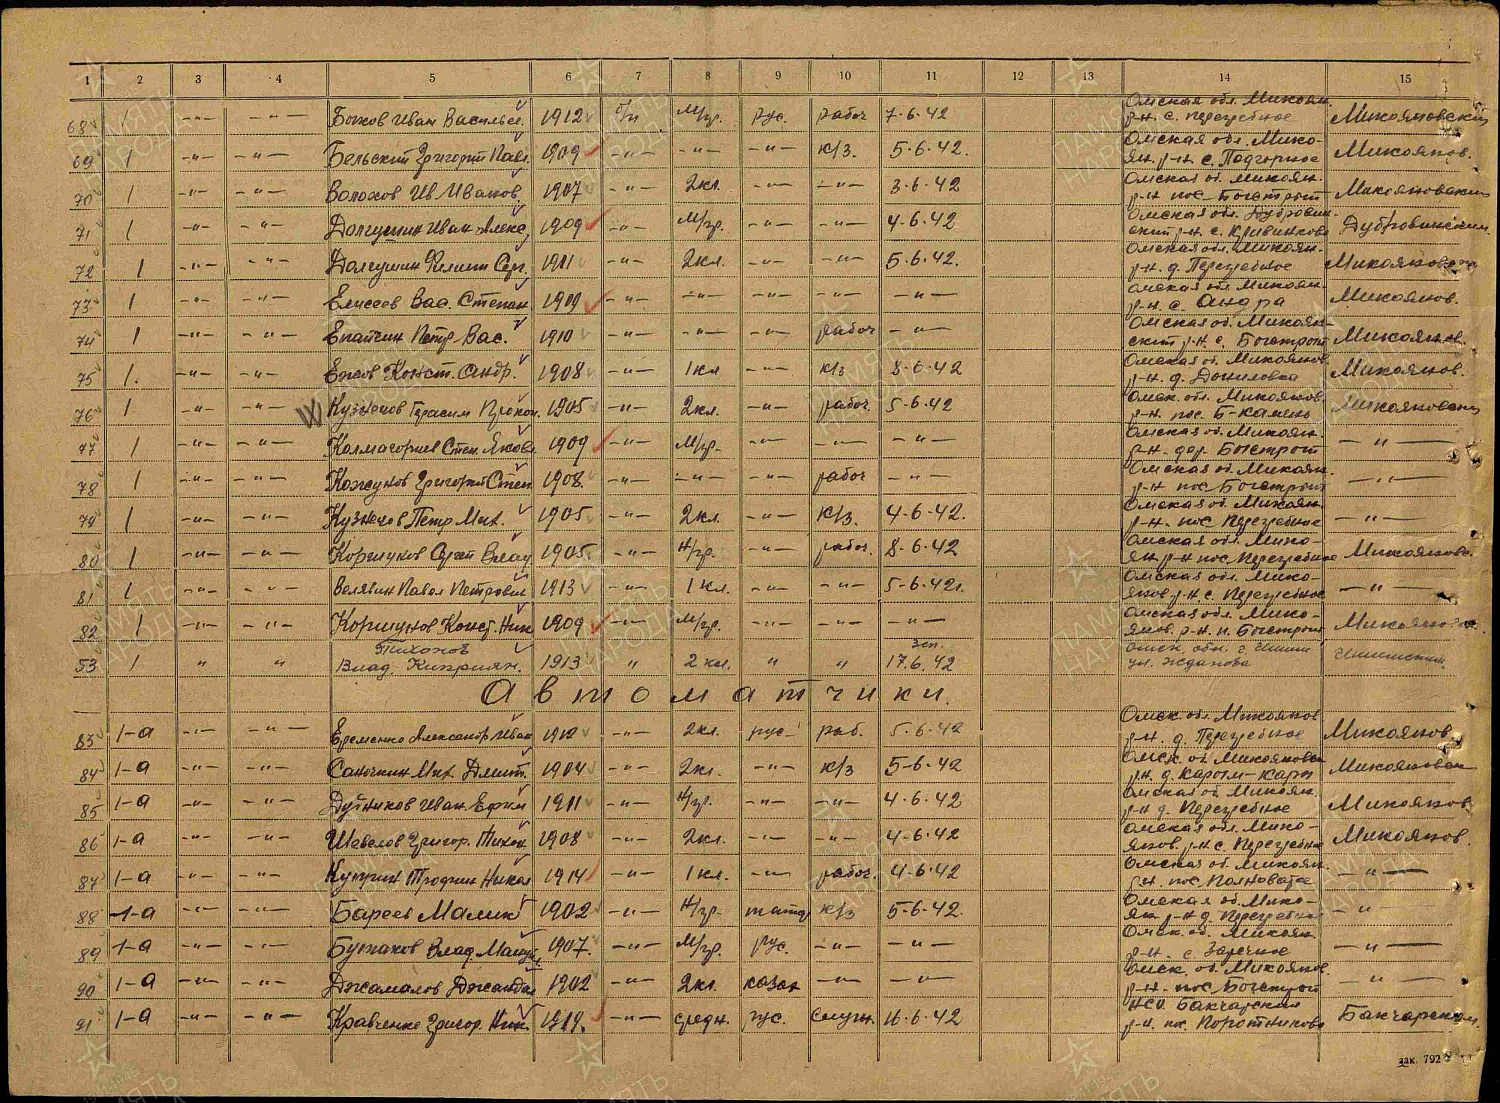 1 2 3 4 5 6 7 8 9 10 11 12 13 14 15
68 1 -"- -"- Иван Василье. 1912 б/п м/гр. рус. рабоч 7-6-42 Омская обл. Микоян. р-н. с. Перегребное Микояновский
69 1 -"- -"- Бельский Григорий Павл. 1909 -"- -"- -"- к/з. 5-6-42. Омская об. Мико- ян. р-н. с. Подгорное Микоянов.
70 1 -"- -"- Волохов Ив. Иванов. 1907 -"- 2кл. -"- -"- 3-6-42 Омская об. Микоян. р-н. пос. Микояновский
71 1 -"- -"- Долгушин Иван Алекс. 1909 -"- м/гр. -"- -"- 4-6-42. Омская обл. Дубровин- ский р-н. с. Дубровинский.
72 1 -"- -"- Долгушин Филипп Серг. 1911 -"- 2кл. -"- -"- 5-6-42. Омская обл. Микоян. р-н. д. Перегребное
73 1 -"- -"- Елисеев Вас. Степан 1909 -"- -"- -"- -"- -"- Омская об. Микоян. р-н. с. Андра Микоянов.
74 1 -"- -"- Епаткин Петр Вас. 1910 -"- -"- -"- рабоч -"- Омская об. Микоян- ский р-н. с. Микоянов.
75 1. -"- -"- Ежов Конст. Андр. 1908 -"- 1кл -"- к/з 8-6-42 Омская об. Микоянов. р-н. д. Даниловка Микоянов.
76 1 -"- -"- Кузнецов Герасим Прокоп. 1905 -"- 2кл. -"- рабоч. 5-6-42 Омск. об. Микоянов. р-н. пос. Б-Камень
77 1 -"- -"- Степ. Яковл. 1909 -"- м/гр. -"- -"- -"- Омская об. Микоян. р-н. дер. -"-
78 1 -"- -"- Кожунов Григорий Степ. 1908. -"- -"- -"- рабоч -"- Омская об. Микоян. р-н. пос. -"-
79 1 -"- -"- Кузнецов Петр Мих. 1905 -"- 2кл. -"- к/з. 4-6-42. Омская об. Микоян. р-н. пос Перегребное -"-
80 1 -"- -"- Коршунов Сергей 1905. -"- н/гр. -"- рабоч. 8-6-42 Омская об. Мико- ян р-н пос. Перегребное
81 1 -"- -"- Велявин Павел Петрович 1913 -"- 1 кл. -"- -"- 5-6-42г. Омская обл. Мико- янов. р-н с. Перегребное -"-
82 1 -"- -"- Коршунов Конст. Ник 1909 -"- м/гр. -"- -"- -"- Омская обл. Мико- янов. р-н. п.
53 1 " " Тихонов Влад. Киприян. 1913 " 2 кл. " " 17.6.42 Омск. обл. г. Ишим ул. Жданова Ишимским
Автоматчики.
83 1-а -"- -"- Еременко Александр Иван 1912 -"- 2кл. рус- раб. 5-6-42 Омск. об. Микоянов р-н. д. Перегребное Микоянов.
84 1-а -"- -"- Саночкин Мих. Дмит. 1904 -"- 2кл. -"- к/з 5-6-42 Омск. об. р-н. д. Карым-Кары
85 1-а -"- -"- Дутников Иван Ефим 1911 -"- н/гр. -"- -"- 4-6-42 Омская об. Микоян. р-н д. Перегребное Микоянов
86 1-а -"- -"- Шевелов Григор. Тихон 1908 -"- 2кл. -"- -"- 4-6-42 Омская обл. Мико- янов. р-н с. Микоянов.
87 1-а -"- -"- Куприн Трофим Никол 1914 -"- 1 кл. -"- рабоч. 4-6-42 Омская об. Микоян. р-н. пос. -"-
88 1-а -"- -"- Бареев Малик 1902 -"- н/гр- татар к/з 5-6-42. Омская об. Мико- ян. р-н д. -"-
89 1-а -"- -"- Бутаков Влад. 1907. -"- м/гр. рус. -"- -"- Омск. об. Микоян. р-н. с Заречное -"-
90 1-а -"- -"- Джамалов 1902 -"- 2кл. казах -"- -"- Омск. об. Микоянов. р-н. пос -"-
91 1-а -"- -"- Кравченко Григор. Ник. 1919. -"- средн. рус. служ. 16-6-42 НСО. Бакчарский р-н. пос.
зак. 792
ПАМЯТЬ НАРОДА